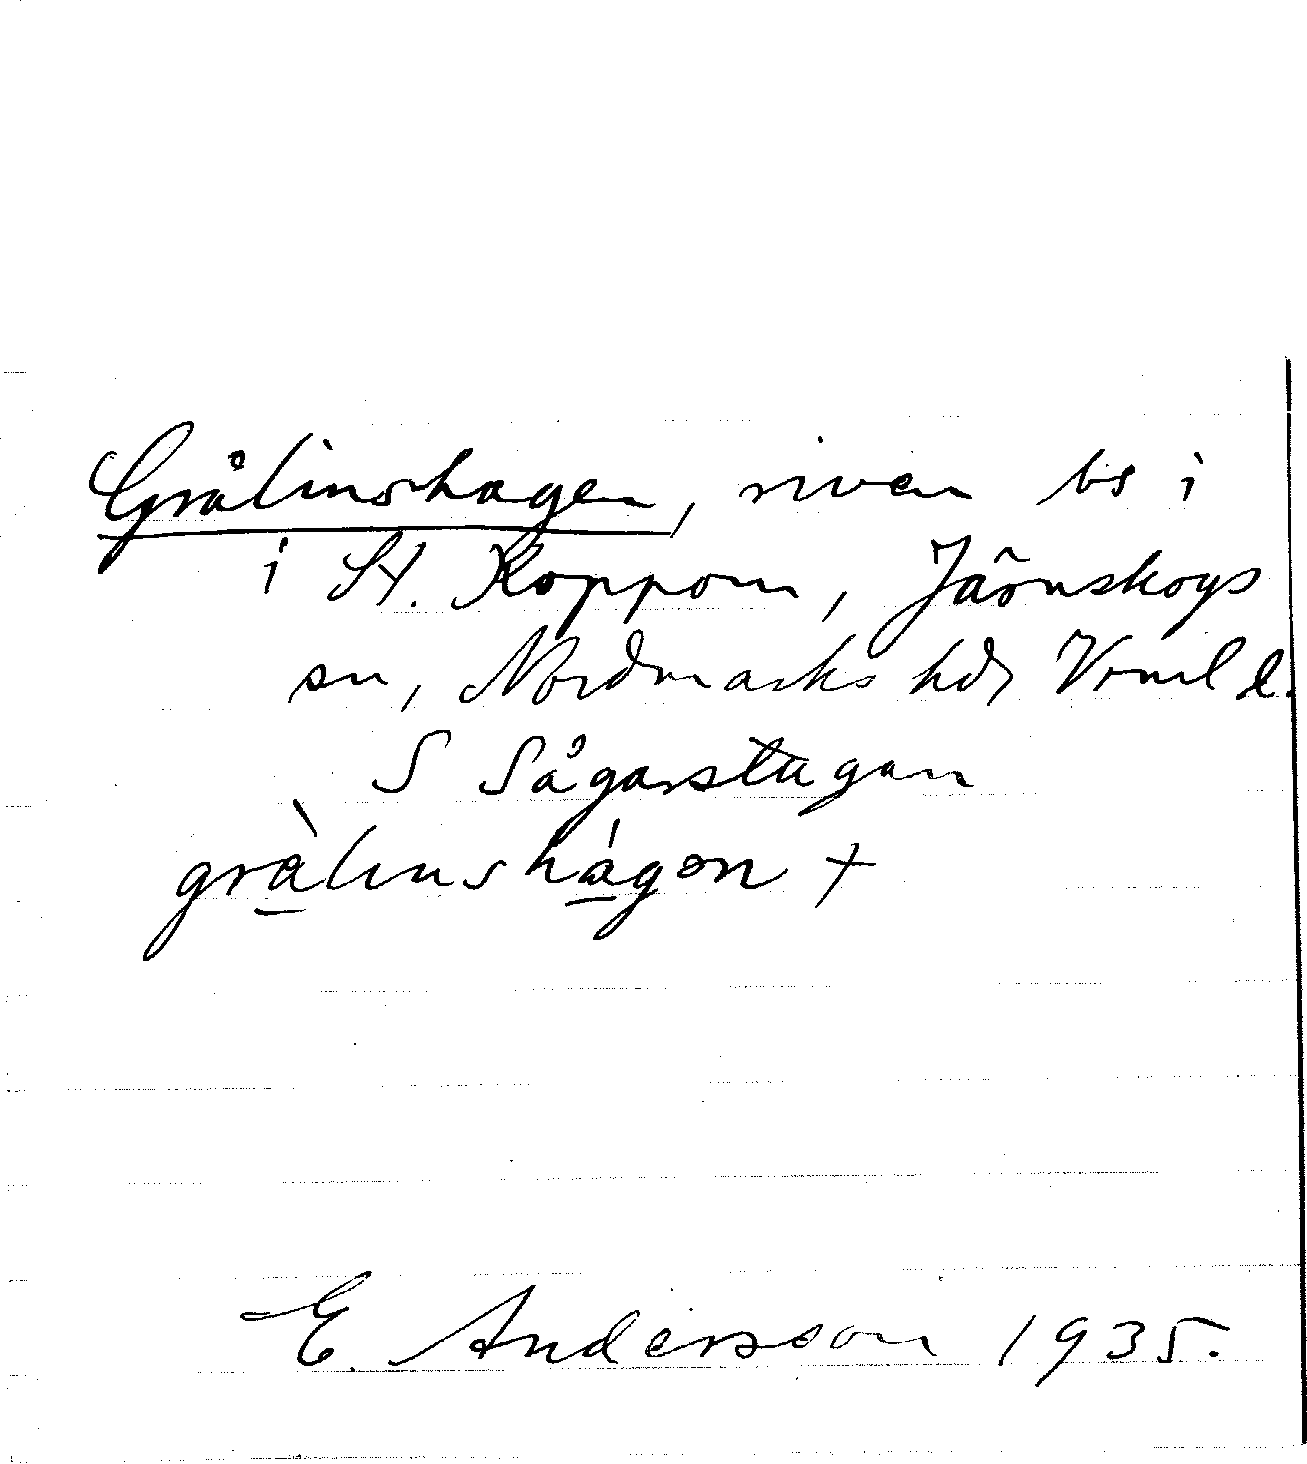 Grålinshagen, riven bs i
i St. Koppom, Järnskogs
sn, Nordmarks hd, Vrml l.
S Sågarstugan
grà̱linshá̱gɘn +
E. Andersson 1935.